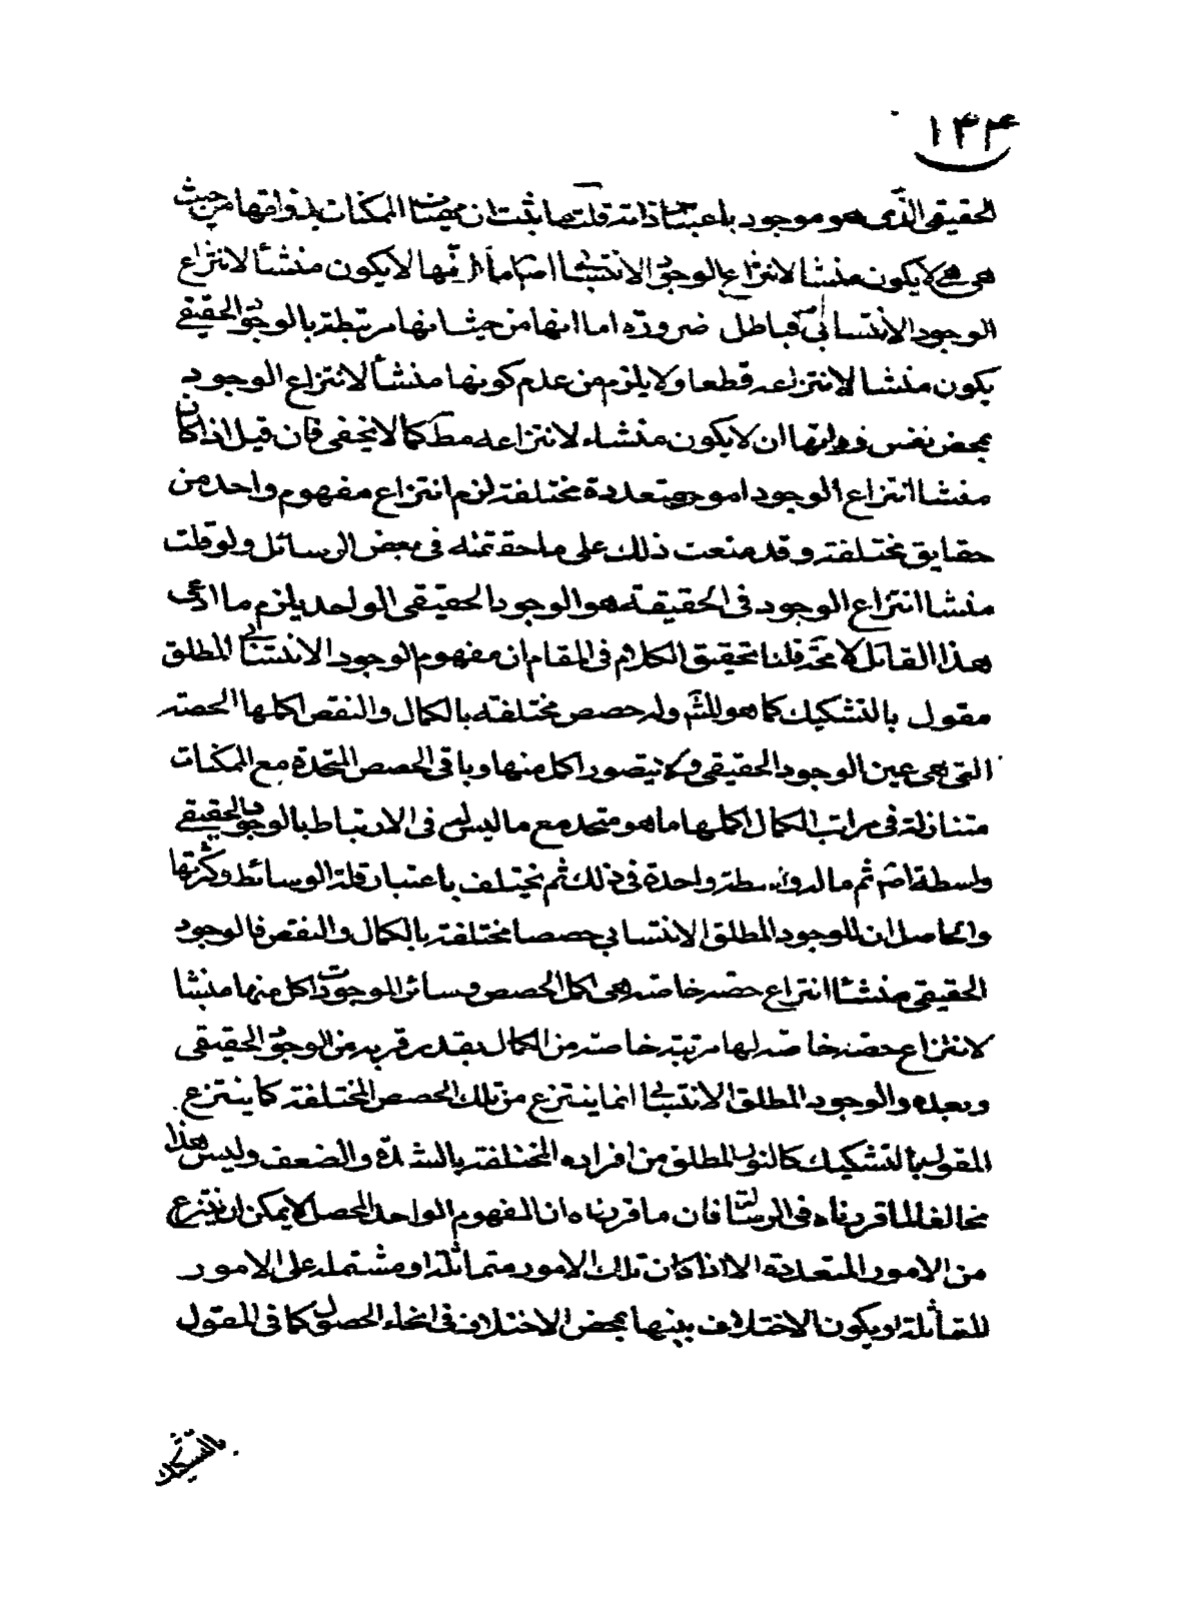 ۱۳۴
الحقيقى الذى هو موجود باعتبار ذاته قلت بما يثبت ان مهيات الممكنات بذواتها من حيث
هى هى لا يكون منشا لانتزاع الوجود الانتسابى انها لا يكون منشأ لانتزاع
الوجود الانتسابى فباطل ضرورة اما انها من حيث انها مرتبطة بالوجود الحقيقى
يكون منشا لانتزاعه قطعا ولا يلزم من عدم كونها منشأ لانتزاع الوجود
بمحض نفس ذواتها ان لا يكون منشاء لانتزاعه مط كما لا يخفى فان قيل اذا كان
منشا انتزاع الوجود امور متعددة مختلفة لزم انتزاع مفهوم واحد من
حقايق مختلفة وقد منعت ذلك على ما حققته فى بعض الرسائل ولو قلت
منشا انتزاع الوجود فى الحقيقة هو الوجود الحقيقى الواحد يلزم ما ادعى
هذا القائل قلنا تحقيق الكلام فى المقام ان مفهوم الوجود الانتسابى المطلق
مقول بالتشكيك كما هو وله حصص مختلفة بالكمال والنقص اكملها الحصه
التى هى عين الوجود الحقيقى ولا يتصور اكمل منها وباقى الحصص المتحدة مع الممكنات
متنازلة فى مراتب الكمال اكملها ما هو متحد مع ما ليس له فى الارتباط بالوجود الحقيقى
واسطة اصم ثم ما له واسطة واحدة فى ذلك ثم يختلف باعتبار قلة الوسائط وكثرتها
والحاصل ان للوجود المطلق الانتسابى حصصا مختلفة بالكمال والنقص فالوجود
الحقيقى منشأ انتزاع حصه خاصه هى اكمل الحصص وسائر الموجودات كل منها منشا
لانتزاع حصه خاصه لها مرتبة خاصه من الكمال بقدر قربه من الوجود الحقيقى
وبعده والوجود المطلق الانتسابى انما ينتزع من تلك الحصص المختلفة كما ينتزع
المقول بالتشكيك كالنور المطلق من افراده المختلفة بالشدة والضعف وليس هذا
مخالفا لما قررناه فى الرسالة فان ما قررناه ان المفهوم الواحد المحصل لا يمكن ان ينتزع
من الامور المتعددة الا اذا كان تلك الامور متماثلة او مشتمله على الامور
المتماثلة او يكون الاختلاف بينها بمحض الاختلاف فى انحاء الحصول كما فى المقول
بالتشكيك